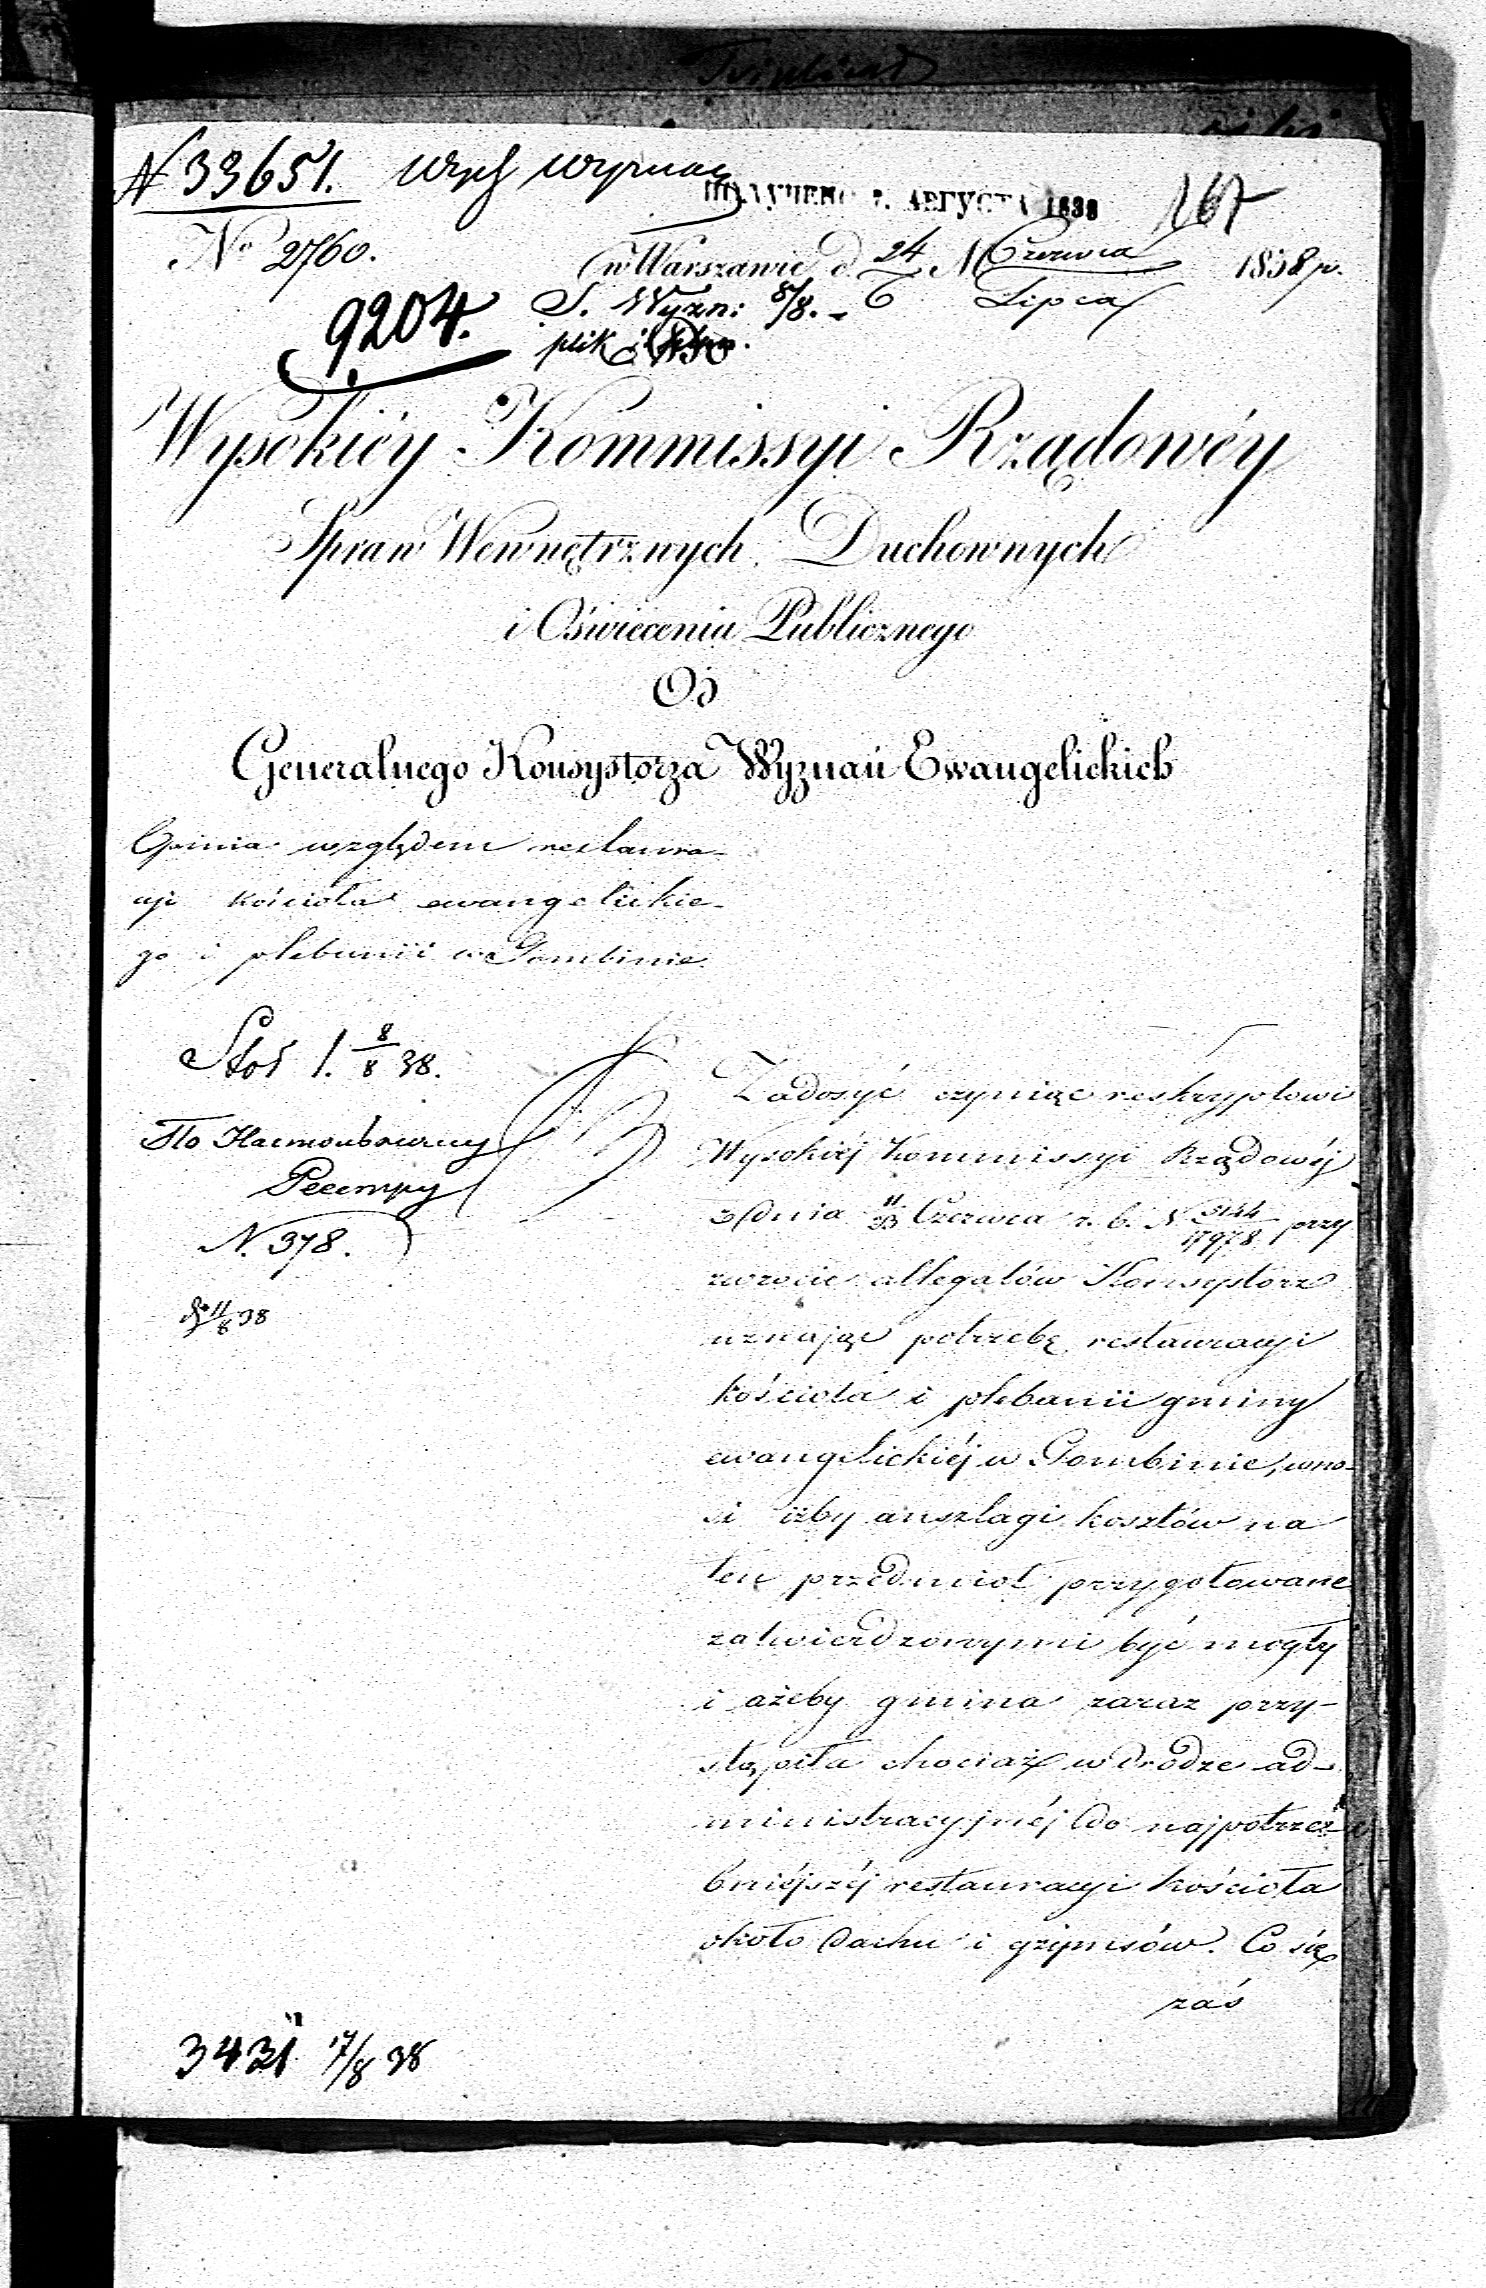 N 33651. Wysh wyznań
ПОЛУЧЕНО 7. АВГУСТА 1838 167
No 2760. w Warszawie d. 24/6 M Czerwca/Lipca 1838 r.
9204. S. Wyzn: 8/8.
plik
Wysokiéy Kommissyi Rządowéy
Spraw Wewnętrznych Duchownych
i Oświecenia Publicznego
Od
Generalnego Konsystorza Wyznań Ewangelickich
Opinia względem restaura-
cyi kościoła ewangelickie-
go i plebanii w Gombinie.
Stoł 1. 8/8 38.
По Настольному
Реестру
N. 378.
11/8 38
Zadosyć czyniąc reskryptowi
Wysokiéj Kommissyi Rządowéj
z dnia 11/23 Czerwca r. b. N 3144/17978 przy
zwrocie allegatów Konsystorz
uznając potrzebę restauracyi
kościoła i plebanii gminy
ewangelickiéj w Gombinie, wno-
si iżby anszlagi kosztów na
ten przedmiot przygotowane
zatwierdzonymi być mogły
i ażeby gmina zaraz przy-
stąpiła chociaż w drodze ad-
ministracyjnéj do najpotrze-
bniéjszéj restauracyi kościoła
około dachu i gzymsów. Co się
zaś
3431 17/8 38